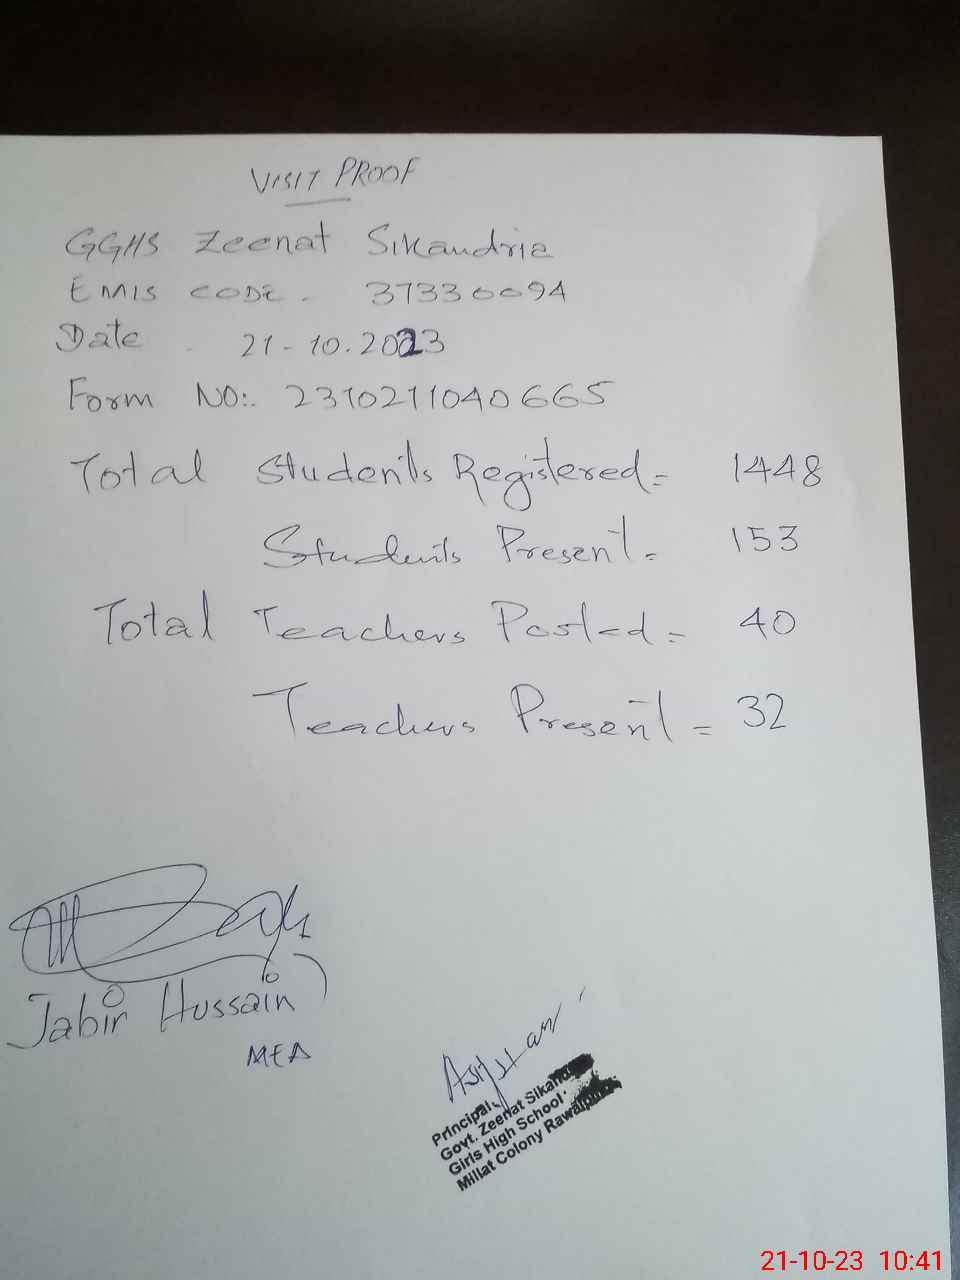 VISIT PROOF
GGHS Zeenat Sikandria
EMIS CODE. 37330094
Date . 21-10.2023
Form NO:. 2310211040665
Total Students Registered = 1448
Students Present = 153
Total Teachers Posted = 40
Teachers Present = 32
Jabir Hussain
MEA
Principal
Govt. Zeenat
Girls High School
Millat Colony
21-10-23 10:41